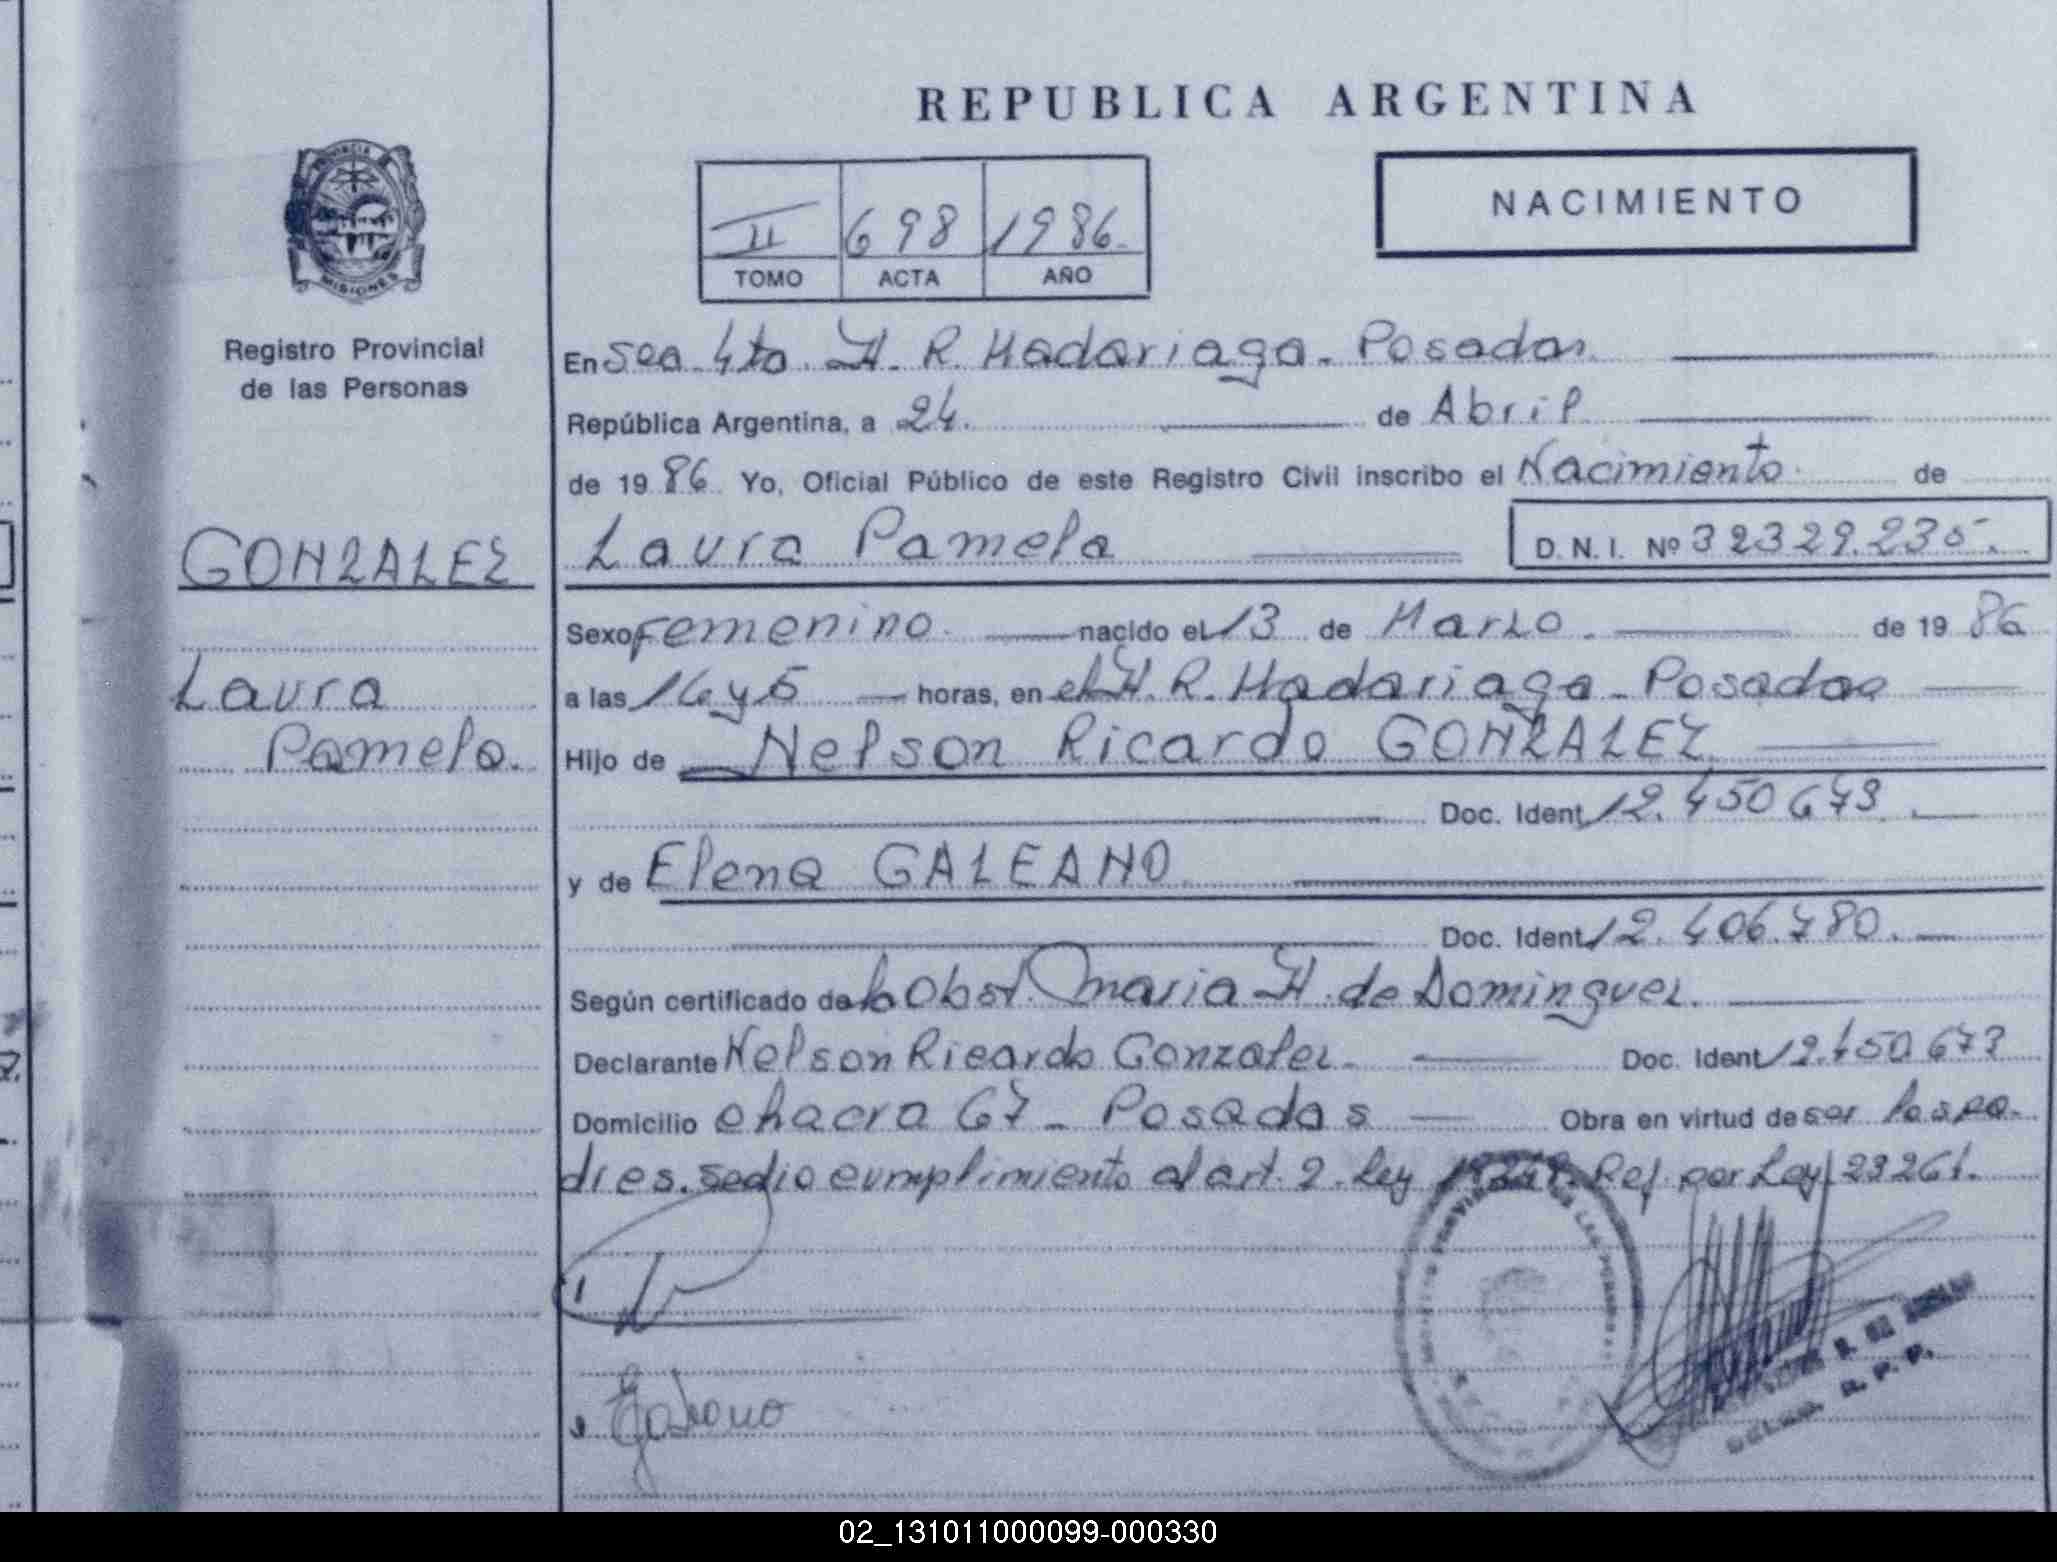 REPUBLICA ARGENTINA
PROVINCIA
MISIONES
NACIMIENTO
II 698 1986.
TOMO ACTA AÑO
Registro Provincial
de las Personas
En Sec. 4ta. H. R. Madariaga - Posadas
República Argentina, a 24. de Abril
de 1986 Yo, Oficial Público de este Registro Civil inscribo el Nacimiento de
GONZALEZ
Laura Pamela D.N.I. Nº 32329.235.
Sexo Femenino. nacido el 13 de Marzo. de 1986
Laura
Pamela.
a las 16 y 5 horas, en el H. R. Madariaga - Posadas
Hijo de Nelson Ricardo GONZALEZ
Doc. Ident 12.450673.
y de Elena GALEANO
Doc. Ident 12.406.780.
Según certificado de la Obst. Maria H. de Dominguez.
Declarante Nelson Ricardo Gonzalez - Doc. Ident 12.450673
Domicilio chacra 67 - Posadas Obra en virtud de ser los pa-
dres. se dio cumplimiento al art. 2. Ley Ref. por Ley 23261.
Galeano
R. P. P.
02_131011000099-000330